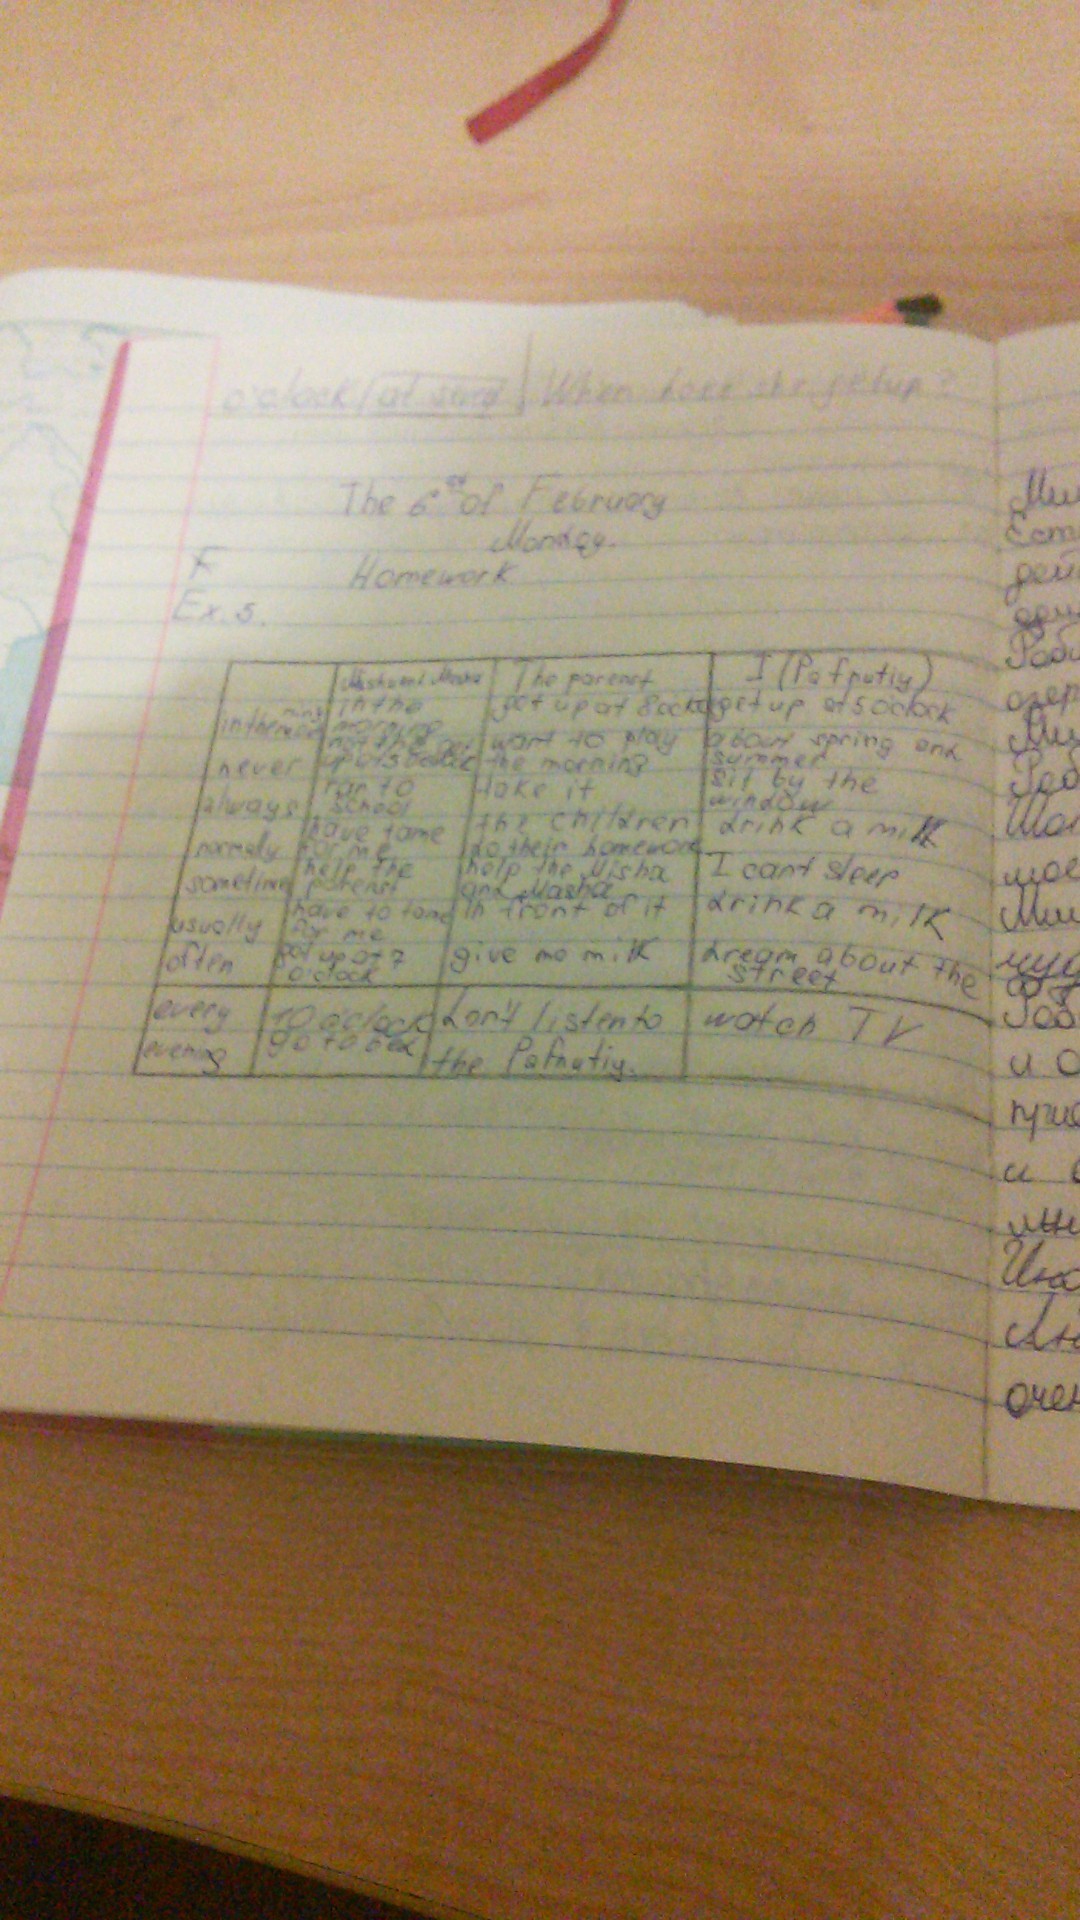 o'clock at
When does she get up?
The 6 of February
Monday.
F
Homework
Ex. 5.
The parenst
I (Pafnutiy)
in the morning
in the morning
get up at 8 o'clock
get up at 5 o'clock
never
up at 5 o'clock
want to play
the morning
about spring and
summer
always
ran to
school
take it
sit by the
window
normaly
have tame
for me
the children
do their homework
drink a milk
sometime
help the
parenst
help the Misha
and Masha
I cant sleep
usually
have to tame
for me
in front of it
drink a milk
often
got up at 7
o'clock
give me milk
dream about the
street
every
evening
10 o'clock
go to bed
don't listen to
the Pafnutiy.
watch TV
Ми
Ест
дей
Раб
Раб
мое
Ми
чуд
Раб
и о
при
и
мн
очен